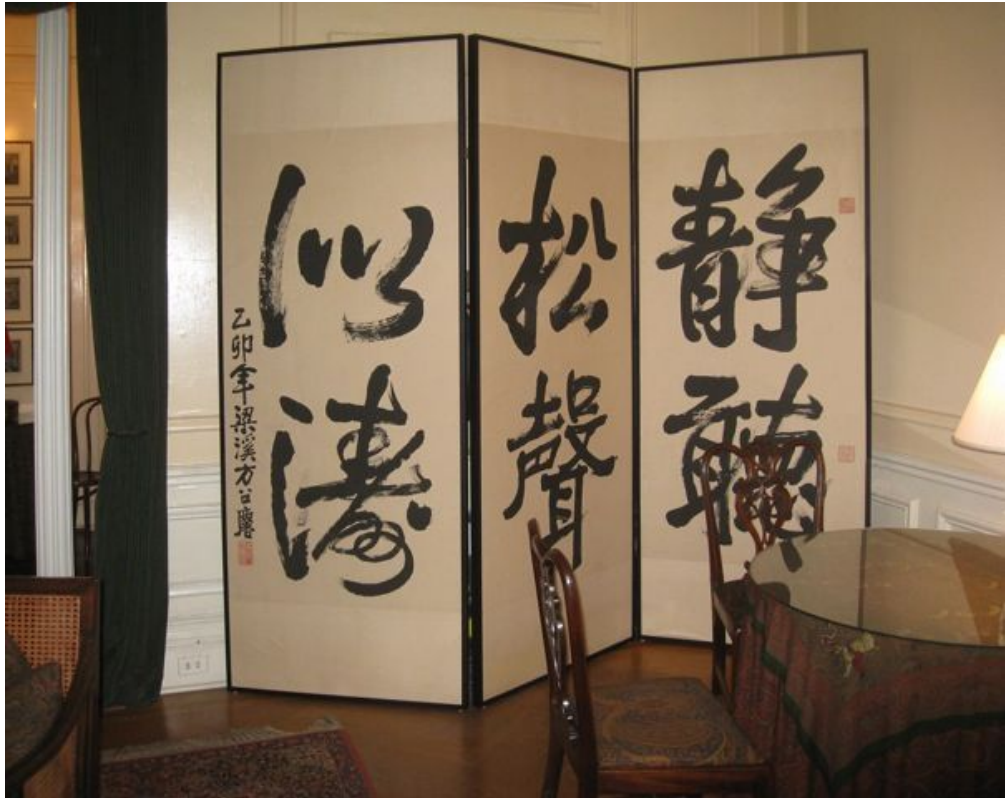 靜聽
松聲
似濤
乙卯年梁溪方召麐